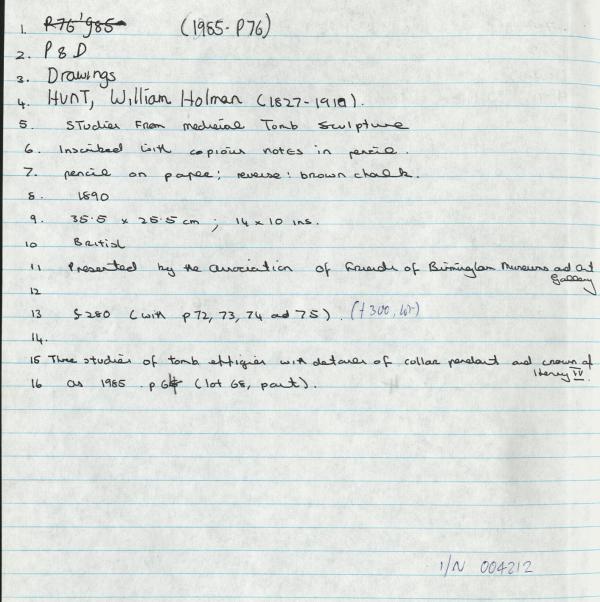 1. P76'985 (1985-P76)
2. P & D
3. Drawings
4. HUNT, William Holman (1827-1910).
5. Studies From medieval Tomb sculpture
6. Inscribed with copious notes in pencil.
7. pencil on paper; reverse: brown chalk.
8. 1890
9. 35.5 x 25.5 cm; 14 x 10 ins.
10 British
11 Presented by the Association of Friends of Birmingham Museums and Art Gallery
12
13 £280 (with p72, 73, 74 ad 75). (£300, lot)
14.
15 Three studies of tomb effigies with details of collar pendant and crown of Henry IV.
16 as 1985 p64 (lot 68, part).
I/N 004212